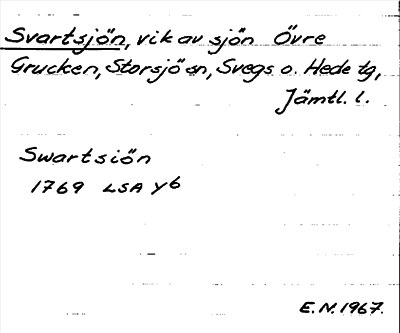 Svartsjön, vik av sjön Övre
Grucken, Storsjö sn, Svegs o. Hede tg,
Jämtl. l.
Swartsiön
1769 LSA Y6
E.N. 1967.